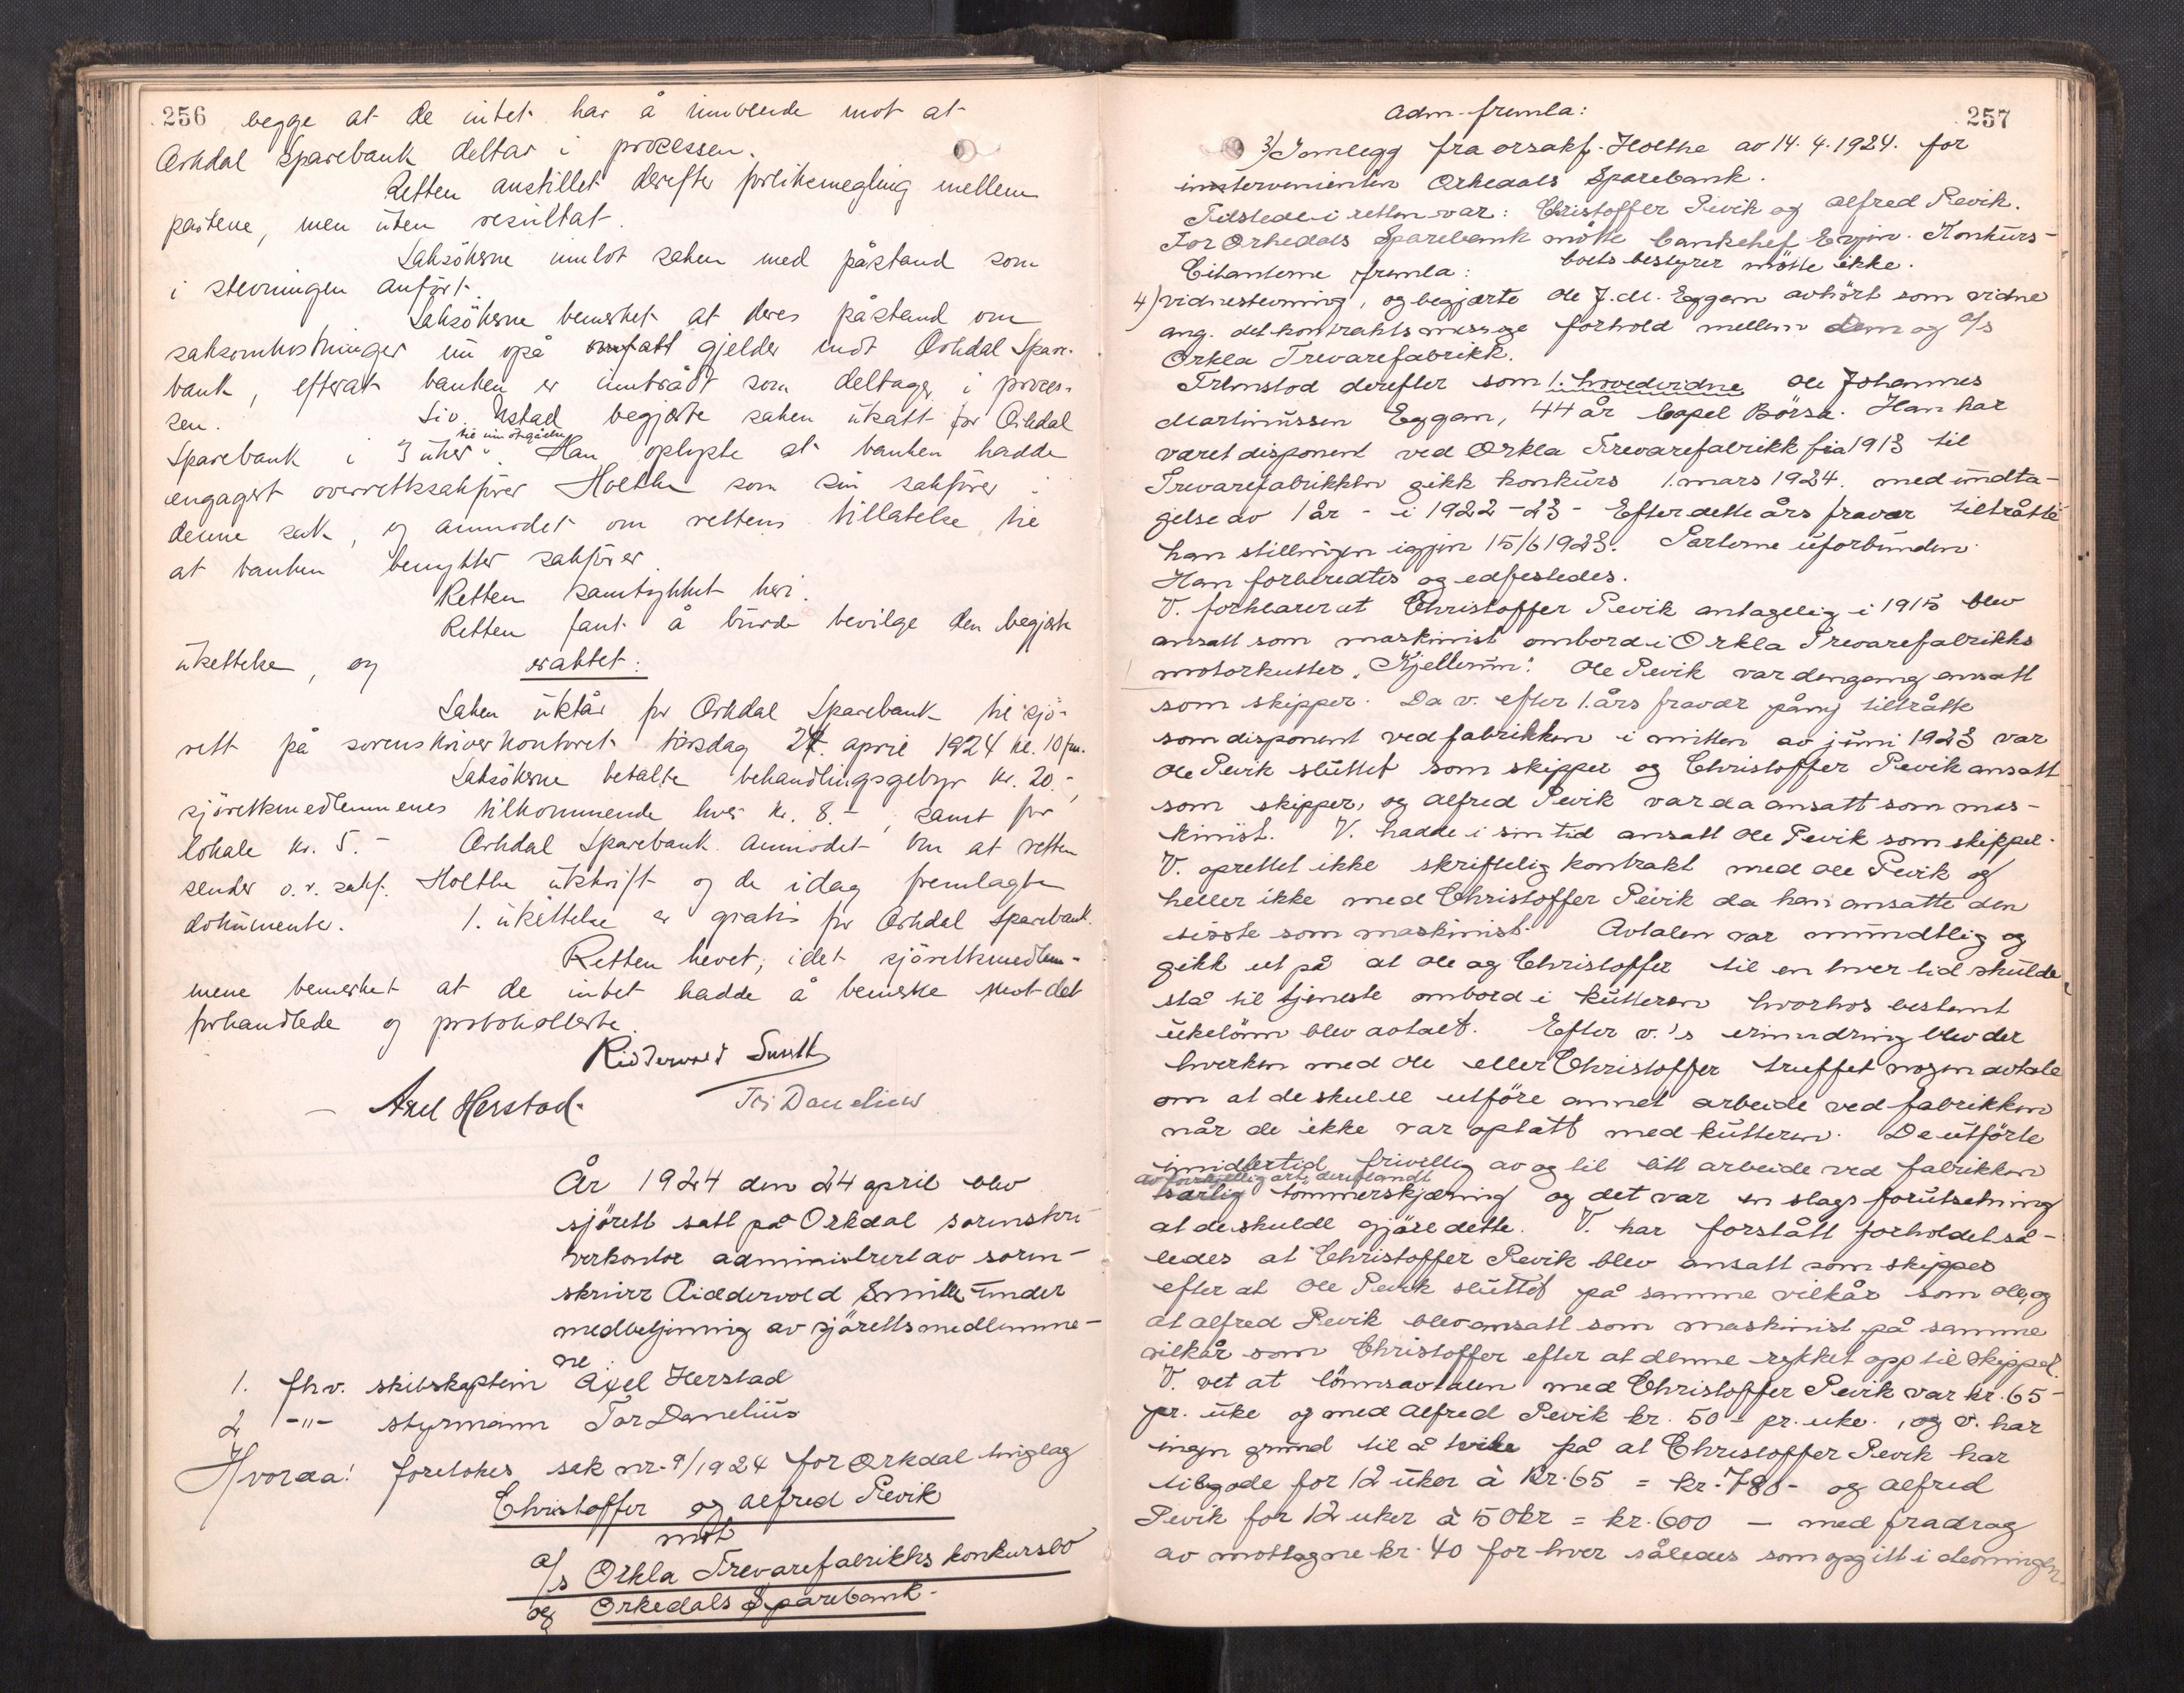 256 begge at de intet har å innvende mot at
Orkdal Sparebank deltar i processen.
Retten anstillet derefter forliksmegling mellem
partene, men uten resultat.
Saksökerne innlot saken med påstand som
i stevningen anført.
Saksökerne bemerket at deres påstand om
saksomkostninger nu også gjelder mot Orkdal Spare-
bank, efterat banken er inntrådt som deltager i proces-
sen. Siv. Ustad begjærte saken utsatt for Orkdal
til imötegåelse
Sparebank i 3 uker. Han oplyste at banken hadde
engagert overrettssakfører Holthe som sin sakfører i
denne sak, og anmodet om rettens tillatelse til
at banken benytter sakfører.
Retten samtykket heri.
Retten fant å burde bevilge den begjærte
utsettelse, og eraktet:
Saken utstår for Orkdal Sparebank til sjö-
rett på sorenskriverkontoret torsdag 24. april 1924 kl. 10 fm.
Saksökerne betalte behandlingsgebyr kr. 20.-,
sjörettsmedlemmenes tilkommende hver kr. 8.-, samt for
lokale kr. 5.- Orkdal Sparebank anmodet om at retten
sender o.r.sakf. Holthe utskrift og de idag fremlagte
dokumenter. 1. utsettelse er gratis for Orkdal Sparebank.
Retten hevet, idet sjörettsmedlem-
mene bemerket at de intet hadde å bemerke mot det
forhandlede og protokollerte.
Riddervold Smith
Axel Herstad. Tor Danelius
År 1924 den 24 april blev
sjörett satt på Orkdal sorenskri-
verkontor administrert av soren-
skriver Riddervold Smith under
medbetjening av sjörettsmedlemme-
ne:
1. fhv. skibskaptein Axel Herstad
2 -"- styrmann Tor Danelius
Hvorda! foretokes sak nr. 9/1924 for Orkdal tinglag
Christoffer og Alfred Pevik
mot
a/s Orkla Trevarefabrikks konkursbo
og Orkedals Sparebank.
257
Adm. fremla:
3) Innlegg fra orsakf. Holthe av 14.4.1924. for
intervenienten Orkedals Sparebank.
Tilstede i retten var: Christoffer Pevik og Alfred Pevik.
For Orkedals Sparebank mötte banksjef Konkurs-
boets bestyrer mötte ikke.
Citantene fremla:
4) vidnestevning, og begjærte Ole J. M. Eggan avhört som vidne
ang. det kontraktsmessige forhold mellem dem og a/s
Orkla Trevarefabrikk.
Fremstod derefter som 1. hovedvidne Ole Johannes
Martinussen Eggan, 44 år bopel Börsa. Han har
været disponent ved Orkla Trevarefabrikk fra 1913 til
Trevarefabrikken gikk konkurs 1. mars 1924. med undta-
gelse av 1 år - i 1922-23 - Efter dette års fravær tiltrådte
han stillingen igjen 15/6 1923. Parterne uforbunden.
Han forberedtes og edfestedes.
V. forklarer at Christoffer Pevik antagelig i 1915 blev
ansatt som maskinist ombord i Orkla Trevarefabrikks
motorkutter "Kjellerun". Ole Pevik var dengang ansatt
som skipper. Da v. efter 1. års fravær påny tiltrådte
som disponent ved fabrikken i mitten av juni 1923 var
Ole Pevik sluttet som skipper og Christoffer Pevik ansatt
som skipper, og Alfred Pevik var da ansatt som mas-
kinist. V. hadde i sin tid ansatt Ole Pevik som skipper.
V. oprettet ikke skriftelig kontrakt med Ole Pevik og
heller ikke med Christoffer Pevik da han ansatte den
sisste som maskinist. Avtalen var mundtlig og
gikk ut på at Ole og Christoffer til en hver tid skulde
stå til tjeneste ombord i kutteren hvorhos bestemt
ukelönn blev avtalt. Efter v.'s erindring blev der
hverken med Ole eller Christoffer truffet nogen avtale
om at de skulde utföre annet arbeide ved fabrikken
når de ikke var optatt med kutteren. De utförte
imidlertid frivillig av og til litt arbeide ved fabrikken
av forskjellig art, deriblandt
særlig tommerskjæring og det var en slags forutsetning
at de skulde gjöre dette. V. har forstått forholdet så-
ledes at Christoffer Pevik blev ansatt som skipper
efter at Ole Pevik sluttet på samme vilkår som Ole, og
at Alfred Pevik blev ansatt som maskinist på samme
vilkår som Christoffer efter at denne rykket opp til skipper.
V. vet at lönnsavtalen med Christoffer Pevik var kr. 65-
pr. uke og med Alfred Pevik kr. 50- pr. uke, og v. har
ingen grund til å tvile på at Christoffer Pevik har
tilgode for 12 uker à kr. 65 = kr. 780- og Alfred
Pevik for 12 uker à 50 kr = kr. 600 - med fradrag
av mottagne kr. 40 for hver således som opgitt i stevningen.